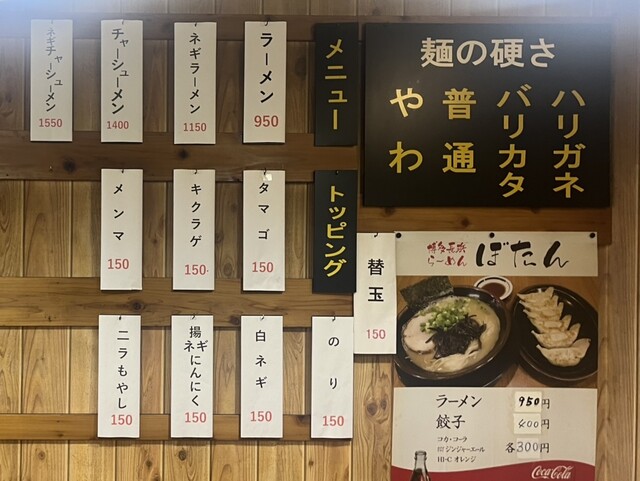 メニュー
ラーメン
950
ネギラーメン
1150
チャーシューメン
1400
ネギチャーシューメン
1550
トッピング
タマゴ
150
キクラゲ
150
メンマ
150
替玉
150
のり
150
白ネギ
150
揚ネギにんにく
150
ニラもやし
150
麺の硬さ
ハリガネ
バリカタ
普通
やわ
博多長浜
らーめん
ぼたん
ラーメン 950円
餃子 400円
コカ・コーラ
ジンジャーエール 各300円
HI-C オレンジ
Coca-Cola